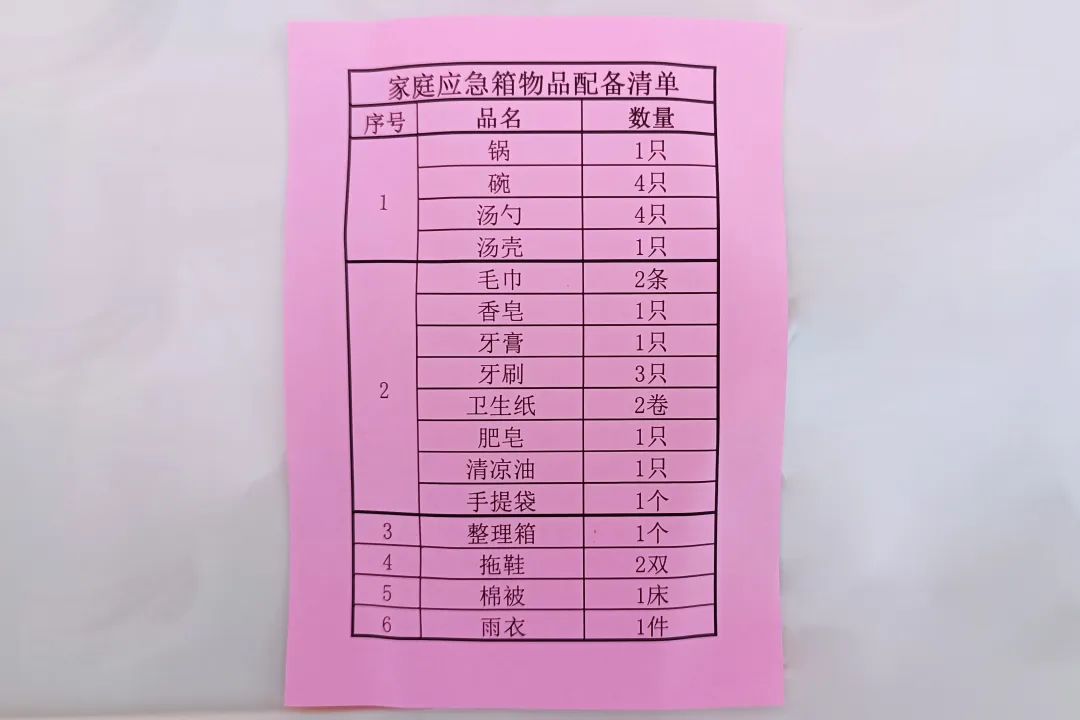 家庭应急箱物品配备清单
序号 品名 数量
1
锅 1只
碗 4只
汤勺 4只
汤壳 1只
2
毛巾 2条
香皂 1只
牙膏 1只
牙刷 3只
卫生纸 2卷
肥皂 1只
清凉油 1只
手提袋 1个
3 整理箱 1个
4 拖鞋 2双
5 棉被 1床
6 雨衣 1件